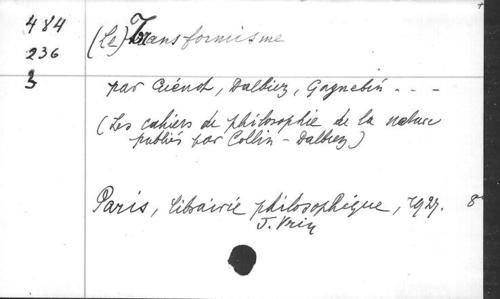 484
236
3
(Le) Transformisme
par Cuénot, Dalbiez, Gagnebin - - -
(Les cahiers de philosophie de la nature
publiés par Collin - Dalbiez)
Paris, librairie philosophique, 1927. 8°
J. Vrin